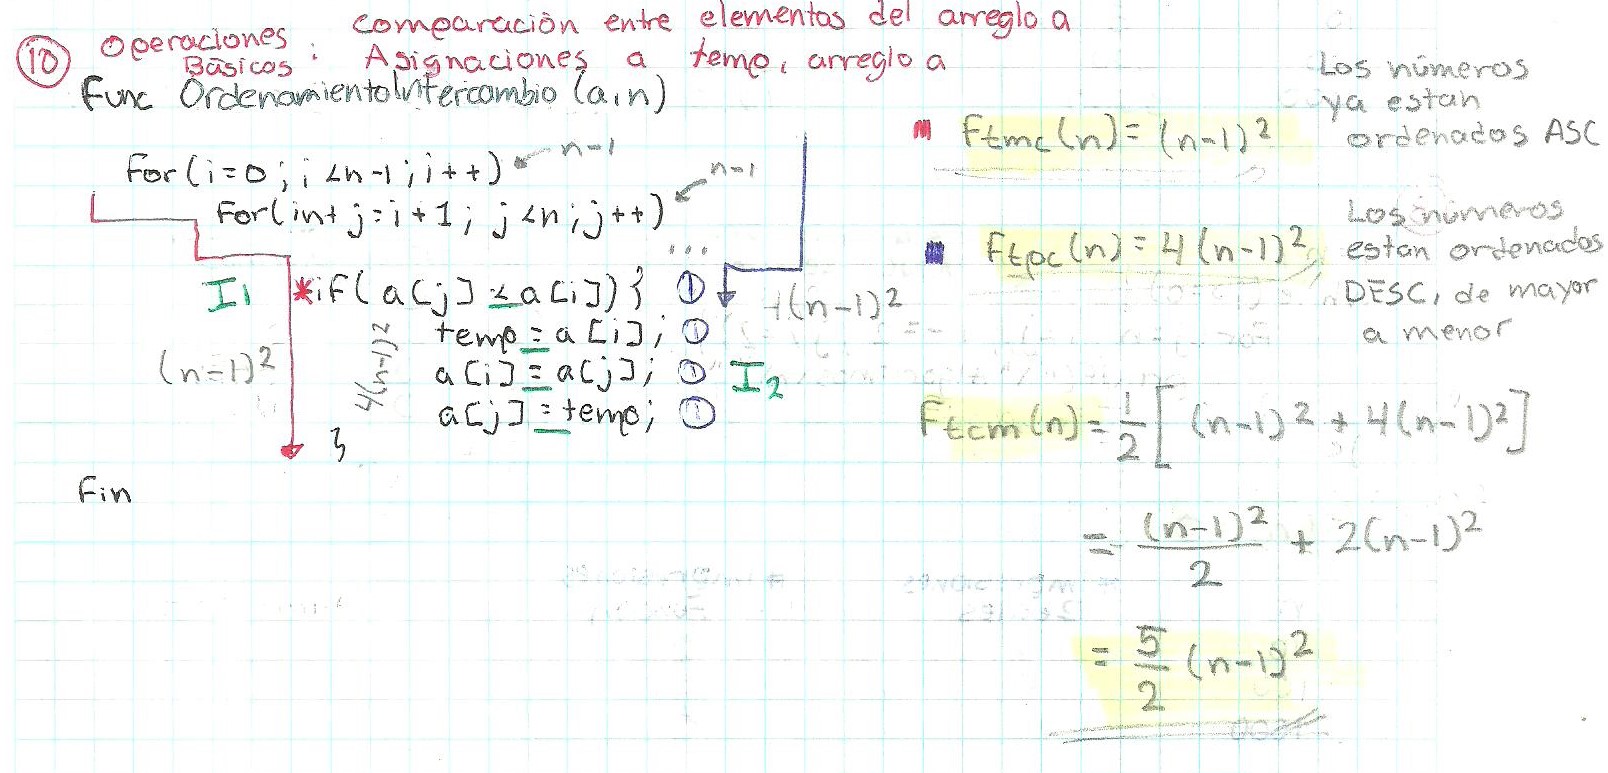 10 Operaciones Básicos : comparación entre elementos del arreglo a
Asignaciones a temp, arreglo a
Func OrdenamientoIntercambio (a,n)
For (i=0; i<n-1; i++) n-1
For (int j=i+1; j<n; j++) n-1
...
I1 *if( a[j] < a[i]){ 1
temp = a[i]; 1
a[i] = a[j]; 1 I2
a[j] = temp; 1
}
Fin
(n-1)²
4(n-1)²
4(n-1)²
Ftmc(n) = (n-1)²
Los números
ya estan
ordenados ASC
Ftpc(n) = 4(n-1)²
Los números
estan ordenados
DESC, de mayor
a menor
Ftcm(n) = 1/2 [ (n-1)² + 4(n-1)²]
= (n-1)²/2 + 2(n-1)²
= 5/2 (n-1)²